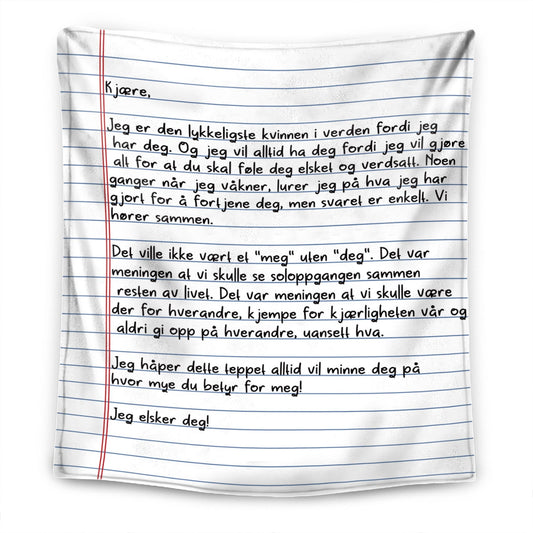 Kjære,
Jeg er den lykkeligste kvinnen i verden fordi jeg
har deg. Og jeg vil alltid ha deg fordi jeg vil gjøre
alt for at du skal føle deg elsket og verdsatt. Noen
ganger når jeg våkner, lurer jeg på hva jeg har
gjort for å fortjene deg, men svaret er enkelt. Vi
hører sammen.
Det ville ikke vært et "meg" uten "deg". Det var
meningen at vi skulle se soloppgangen sammen
resten av livet. Det var meningen at vi skulle være
der for hverandre, kjempe for kjærligheten vår og
aldri gi opp på hverandre, uansett hva.
Jeg håper dette teppet alltid vil minne deg på
hvor mye du betyr for meg!
Jeg elsker deg!